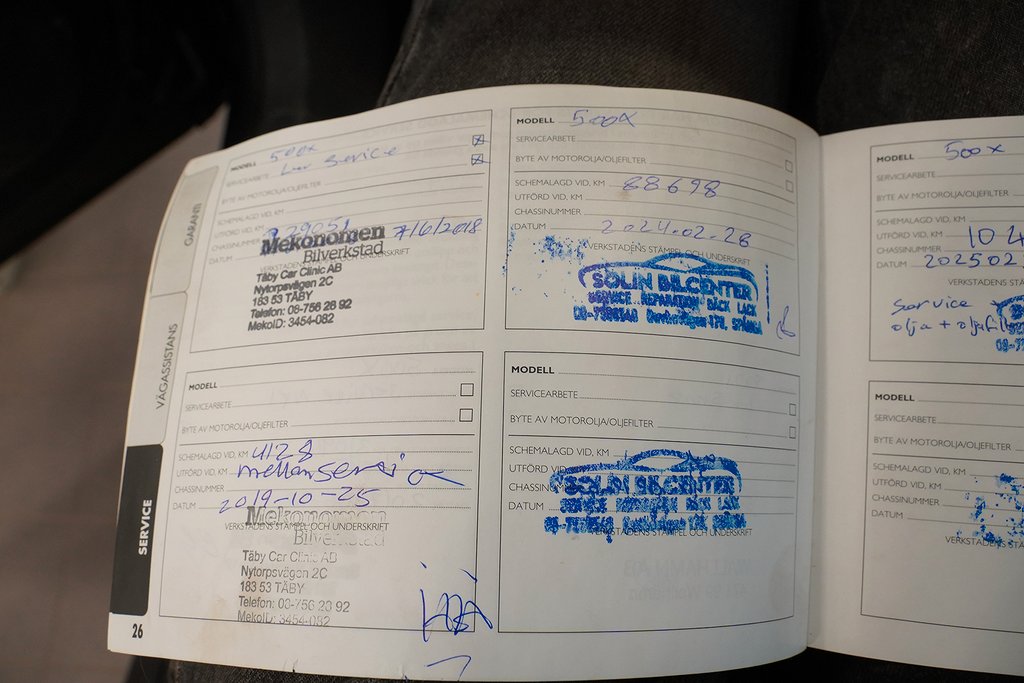 GARANTI
VÄGASSISTANS
SERVICE
26
MODELL 500x
SERVICEARBETE Service
BYTE AV MOTOROLJA/OLJEFILTER
SCHEMALAGD VID, KM
UTFÖRD VID, KM 29051
CHASSINUMMER
DATUM 7/6/2018
VERKSTADENS STÄMPEL OCH UNDERSKRIFT
Mekonomen
Bilverkstad
Täby Car Clinic AB
Nytorpsvägen 2C
183 53 TÄBY
Telefon: 08-756 28 92
MekoID: 3454-082
MODELL
SERVICEARBETE
BYTE AV MOTOROLJA/OLJEFILTER
SCHEMALAGD VID, KM 4128
UTFÖRD VID, KM mellanservice
CHASSINUMMER
DATUM 2019-10-25
VERKSTADENS STÄMPEL OCH UNDERSKRIFT
Mekonomen
Bilverkstad
Täby Car Clinic AB
Nytorpsvägen 2C
183 53 TÄBY
Telefon: 08-756 28 92
MekoID: 3454-082
MODELL 500X
SERVICEARBETE
BYTE AV MOTOROLJA/OLJEFILTER
SCHEMALAGD VID, KM 88698
UTFÖRD VID, KM
CHASSINUMMER
DATUM 2024.02.28
VERKSTADENS STÄMPEL OCH UNDERSKRIFT
SOLIN BILCENTER
SERVICE REPARATION DÄCK LACK
MODELL
SERVICEARBETE
BYTE AV MOTOROLJA/OLJEFILTER
SCHEMALAGD VID, KM
UTFÖRD VID, KM
CHASSIN
DATUM
VERKSTADENS STÄMPEL OCH UNDERSKRIFT
SOLIN BILCENTER
SERVICE REPARATION DÄCK LACK
MODELL 500X
SERVICEARBETE
BYTE AV MOTOROLJA/OLJEFILTER
SCHEMALAGD VID, KM
UTFÖRD VID, KM 104
CHASSINUMMER
DATUM 202502
VERKSTADENS STÄMP
Service
olja + oljefil
MODELL
SERVICEARBETE
BYTE AV MOTOROLJA/OLJEFILTER
SCHEMALAGD VID, KM
UTFÖRD VID, KM
CHASSINUMMER
DATUM
VERKSTADENS STÄ